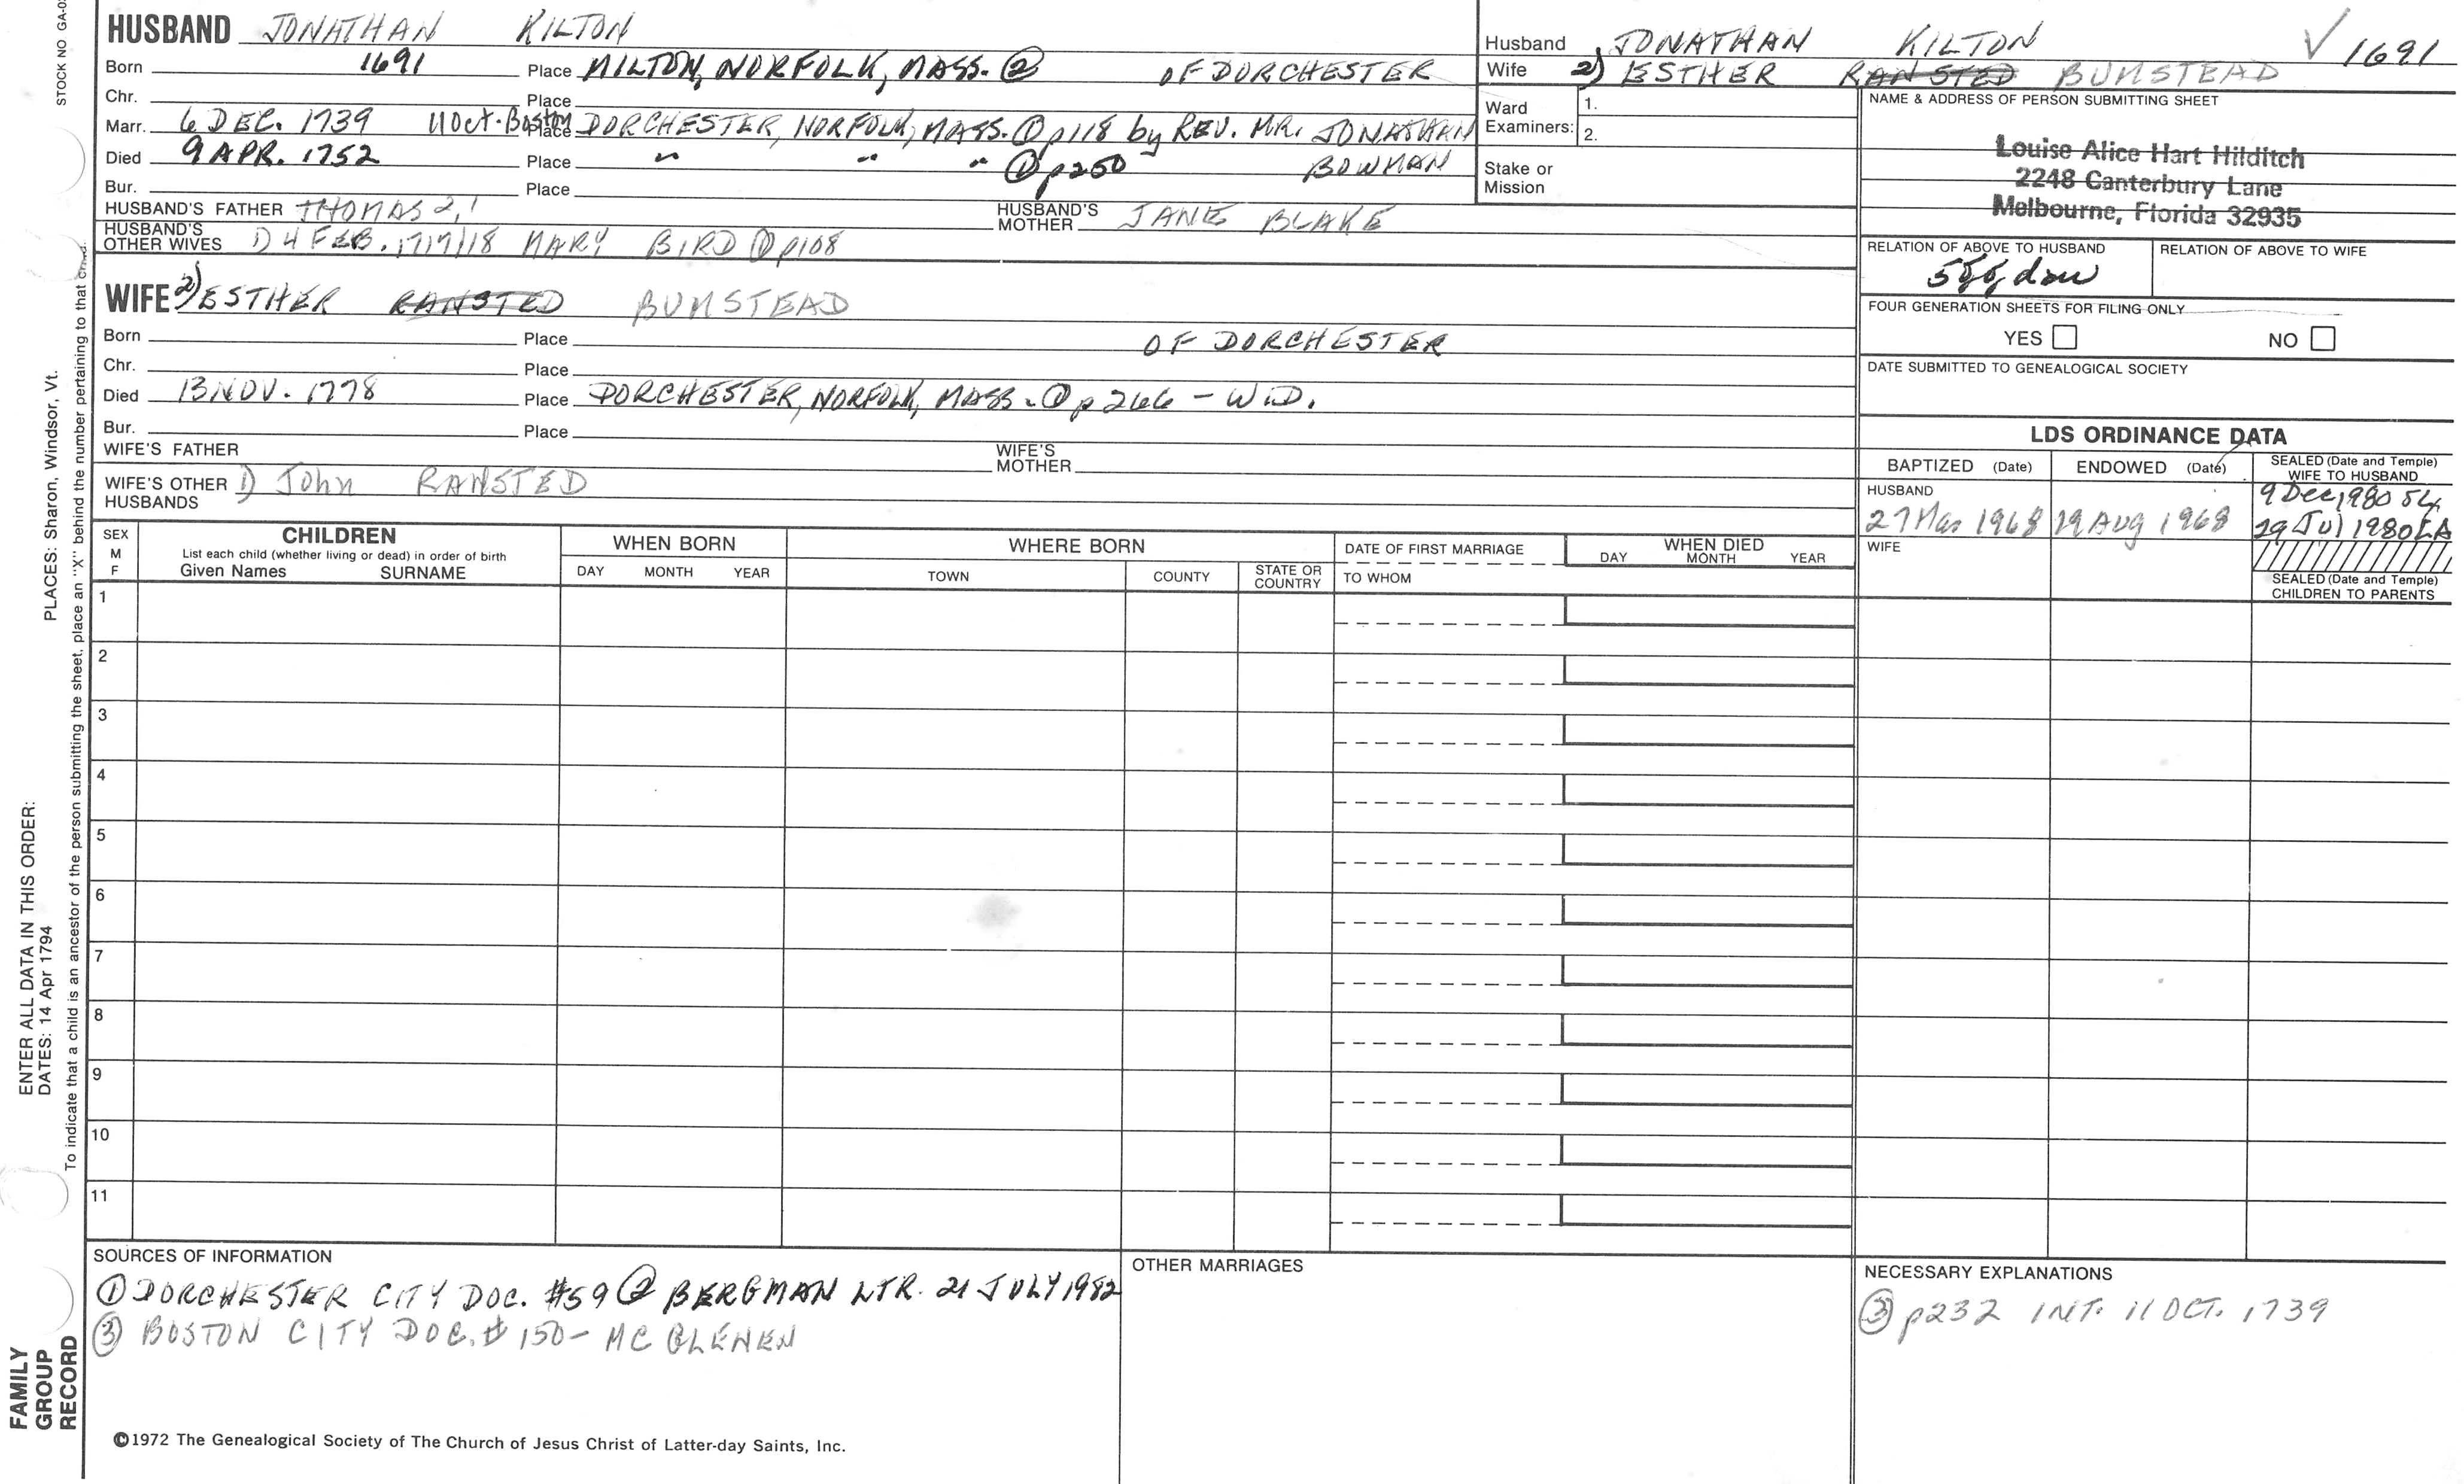 STOCK NO GA-0
HUSBAND JONATHAN KILTON
Born 1691 Place MILTON, NORFOLK, MASS. ② OF DORCHESTER
Chr. Place
Marr. 6 DEC. 1739 11 Oct. Boston Place DORCHESTER, NORFOLK, MASS. ① p118 by REV. MR. JONATHAN
Died 9 APR. 1752 Place " " " ① p250 BOWMAN
Bur. Place
HUSBAND'S FATHER THOMAS 2, 1 HUSBAND'S MOTHER JANE BLAKE
HUSBAND'S OTHER WIVES 1) 4 FEB. 1717/18 MARY BIRD ① p108
WIFE 2) ESTHER RANSTED BUMSTEAD
Born Place OF DORCHESTER
Chr. Place
Died 13 NOV. 1778 Place DORCHESTER, NORFOLK, MASS. ① p 266 - WID.
Bur. Place
WIFE'S FATHER WIFE'S MOTHER
WIFE'S OTHER HUSBANDS 1) John RANSTED
Husband JONATHAN KILTON ✓ 1691
Wife 2) ESTHER RANSTED BUMSTEAD
Ward Examiners: 1.
2.
Stake or Mission
NAME & ADDRESS OF PERSON SUBMITTING SHEET
Louise Alice Hart Hilditch
2248 Canterbury Lane
Melbourne, Florida 32935
RELATION OF ABOVE TO HUSBAND RELATION OF ABOVE TO WIFE
FOUR GENERATION SHEETS FOR FILING ONLY
YES NO
DATE SUBMITTED TO GENEALOGICAL SOCIETY
LDS ORDINANCE DATA
BAPTIZED (Date) ENDOWED (Date) SEALED (Date and Temple) WIFE TO HUSBAND
HUSBAND 9 Dec 1980 SL
27 Mar 1968 19 Aug 1968 29 Jul 1980 LA
WIFE
SEALED (Date and Temple)
CHILDREN TO PARENTS
SEX M F
CHILDREN
List each child (whether living or dead) in order of birth
Given Names SURNAME
WHEN BORN
DAY MONTH YEAR
WHERE BORN
TOWN COUNTY STATE OR COUNTRY
DATE OF FIRST MARRIAGE
TO WHOM
WHEN DIED
DAY MONTH YEAR
1
2
3
4
5
6
7
8
9
10
11
SOURCES OF INFORMATION
① DORCHESTER CITY DOC. #59 ② BERGMAN LTR. 21 JULY 1982
③ BOSTON CITY DOC. # 150 - MC GLENEN
OTHER MARRIAGES
NECESSARY EXPLANATIONS
③ p232 INT. 11 OCT. 1739
©1972 The Genealogical Society of The Church of Jesus Christ of Latter-day Saints, Inc.
FAMILY
GROUP
RECORD
ENTER ALL DATA IN THIS ORDER:
DATES: 14 Apr 1794
PLACES: Sharon, Windsor, Vt.
To indicate that a child is an ancestor of the person submitting the sheet, place an "X" behind the number pertaining to that child.